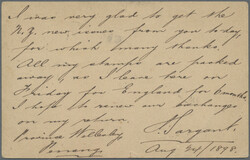 I was very glad to get the
N.Z. new issues from you to day,
for which many thanks.
All my stamps are packed
away as I leave here on
Friday for England for 6 months
I hope to renew our exchanges
on my return.
Province Wellesley
Penang
Aug 24/1898.